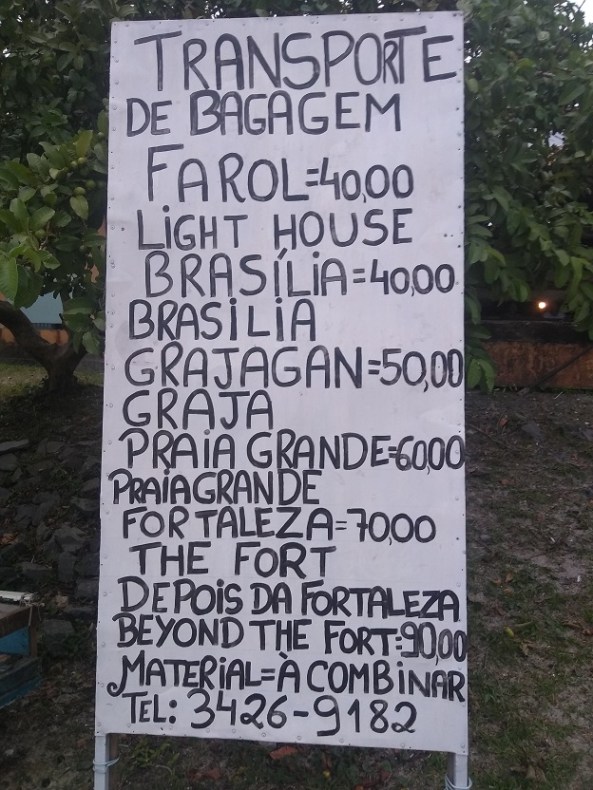 TRANSPORTE
DE BAGAGEM
FAROL=40,00
LIGHT HOUSE
BRASÍLIA=40,00
BRASILIA
GRAJAGAN=50,00
GRAJA
PRAIA GRANDE=60,00
PRAIA GRANDE
FORTALEZA=70,00
THE FORT
DEPOIS DA FORTALEZA
BEYOND THE FORT=90,00
MATERIAL=À COMBINAR
TEL: 3426-9182